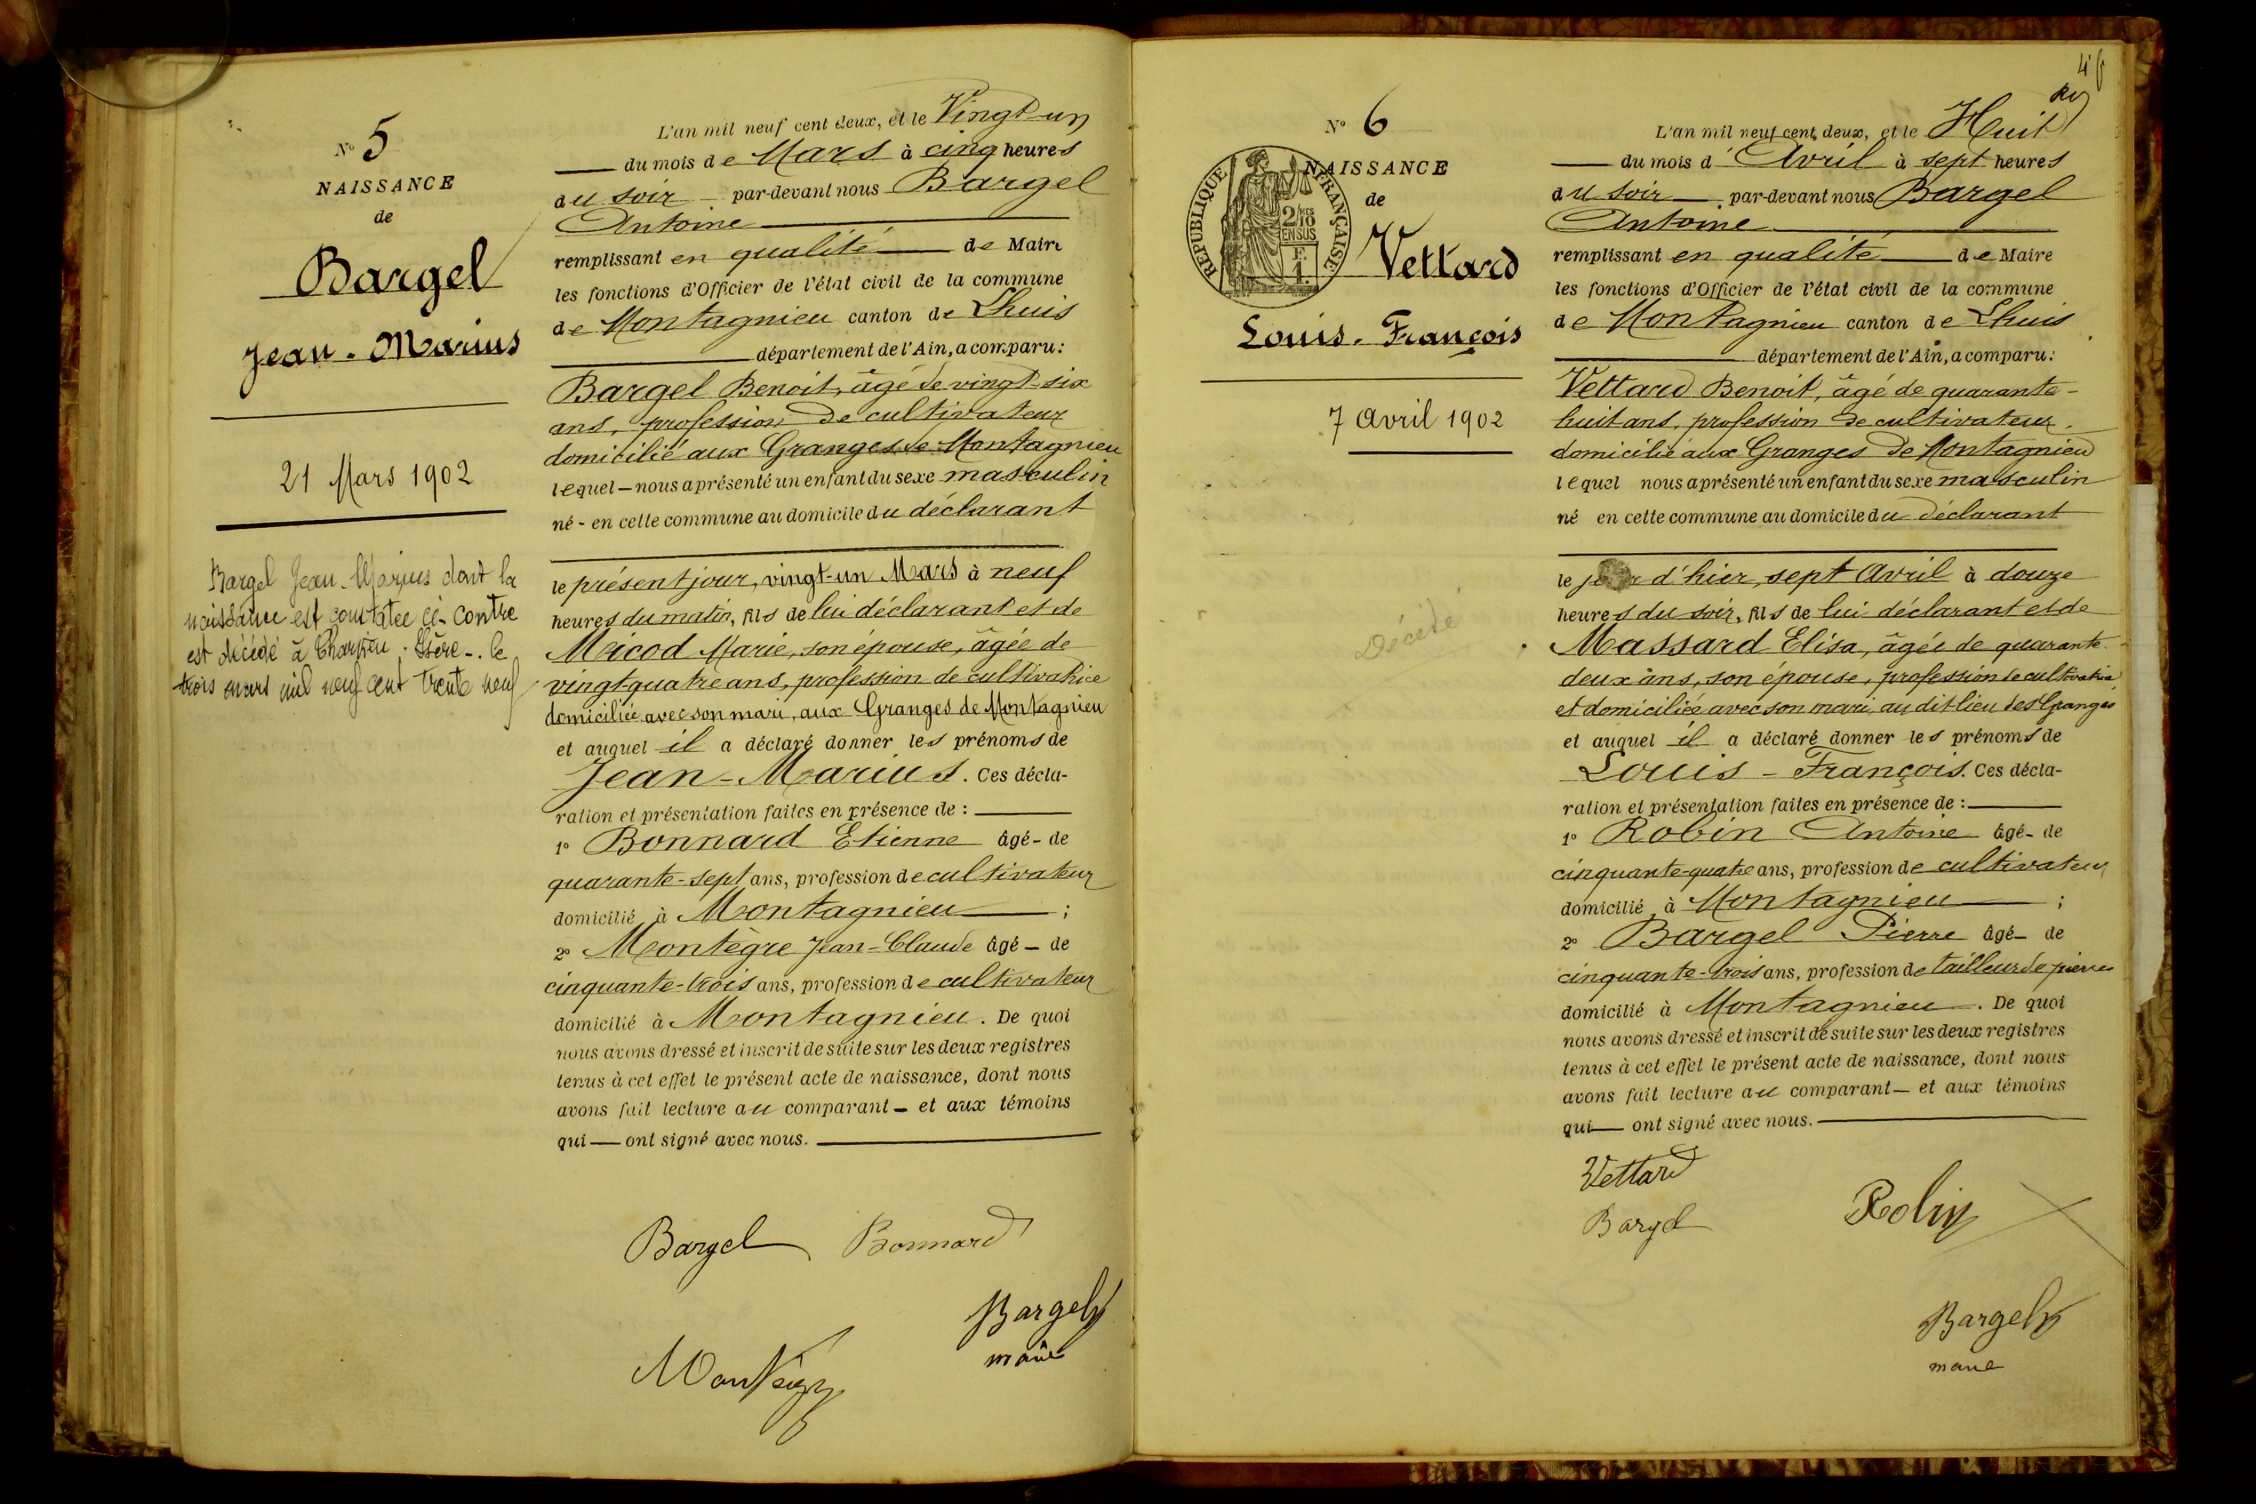 N° 5
NAISSANCE
de
Bargel
Jean-Marius
21 Mars 1902
Bargel Jean-Marius dont la
naissance est constatée ci-contre
est décédé à Charvieu - Isère - le
trois mars mil neuf cent trente neuf
L'an mil neuf cent deux, et le Vingt-un
du mois de Mars à cinq heures
du soir par-devant nous Bargel
Antoine
remplissant en qualité de Maire
les fonctions d'Officier de l'état civil de la commune
de Montagnieu canton de Lhuis
département de l'Ain, a comparu :
Bargel Benoit, âgé de vingt-six
ans, profession de cultivateur
domicilié aux Granges de Montagnieu
lequel — nous a présenté un enfant du sexe masculin
né - en cette commune au domicile du déclarant
le présent jour, vingt-un Mars à neuf
heures du matin, fils de lui déclarant et de
Micod Marie, son épouse, âgée de
vingt-quatre ans, profession de cultivatrice
domiciliée avec son mari, aux Granges de Montagnieu
et auquel il a déclaré donner les prénoms de
Jean-Marius. Ces décla-
ration et présentation faites en présence de :
1° Bonnard Etienne âgé - de
quarante-sept ans, profession de cultivateur
domicilié à Montagnieu ;
2° Montègre Jean-Claude âgé — de
cinquante-trois ans, profession de cultivateur
domicilié à Montagnieu. De quoi
nous avons dressé et inscrit de suite sur les deux registres
tenus à cet effet le présent acte de naissance, dont nous
avons fait lecture au comparant — et aux témoins
qui — ont signé avec nous.
Bargel Bonnard
Bargel
maire
Montègre
46
N° 6
NAISSANCE
de
RÉPUBLIQUE FRANÇAISE
2/10
EN SUS
F.
1.
Vettard
Louis-François
7 Avril 1902
Décédé
L'an mil neuf cent deux, et le Huit
du mois d' Avril à sept heures
du soir par-devant nous Bargel
Antoine
remplissant en qualité de Maire
les fonctions d'Officier de l'état civil de la commune
de Montagnieu canton de Lhuis
département de l'Ain, a comparu :
Vettard Benoit, âgé de quarante-
huit ans, profession de cultivateur
domicilié aux Granges de Montagnieu
lequel nous a présenté un enfant du sexe masculin
né en cette commune au domicile du déclarant
le jour d'hier, sept Avril à douze
heures du soir, fils de lui déclarant et de
Massard Elisa, âgée de quarante-
deux ans, son épouse, profession de cultivatrice
et domiciliée avec son mari, au dit-lieu des Granges
et auquel il a déclaré donner les prénoms de
Louis-François. Ces décla-
ration et présentation faites en présence de :
1° Robin Antoine âgé - de
cinquante-quatre ans, profession de cultivateur
domicilié à Montagnieu ;
2° Bargel Pierre âgé - de
cinquante-trois ans, profession de tailleur de pierres
domicilié à Montagnieu. De quoi
nous avons dressé et inscrit de suite sur les deux registres
tenus à cet effet le présent acte de naissance, dont nous
avons fait lecture au comparant — et aux témoins
qui — ont signé avec nous.
Vettard
Bargel Robin
Bargel
maire